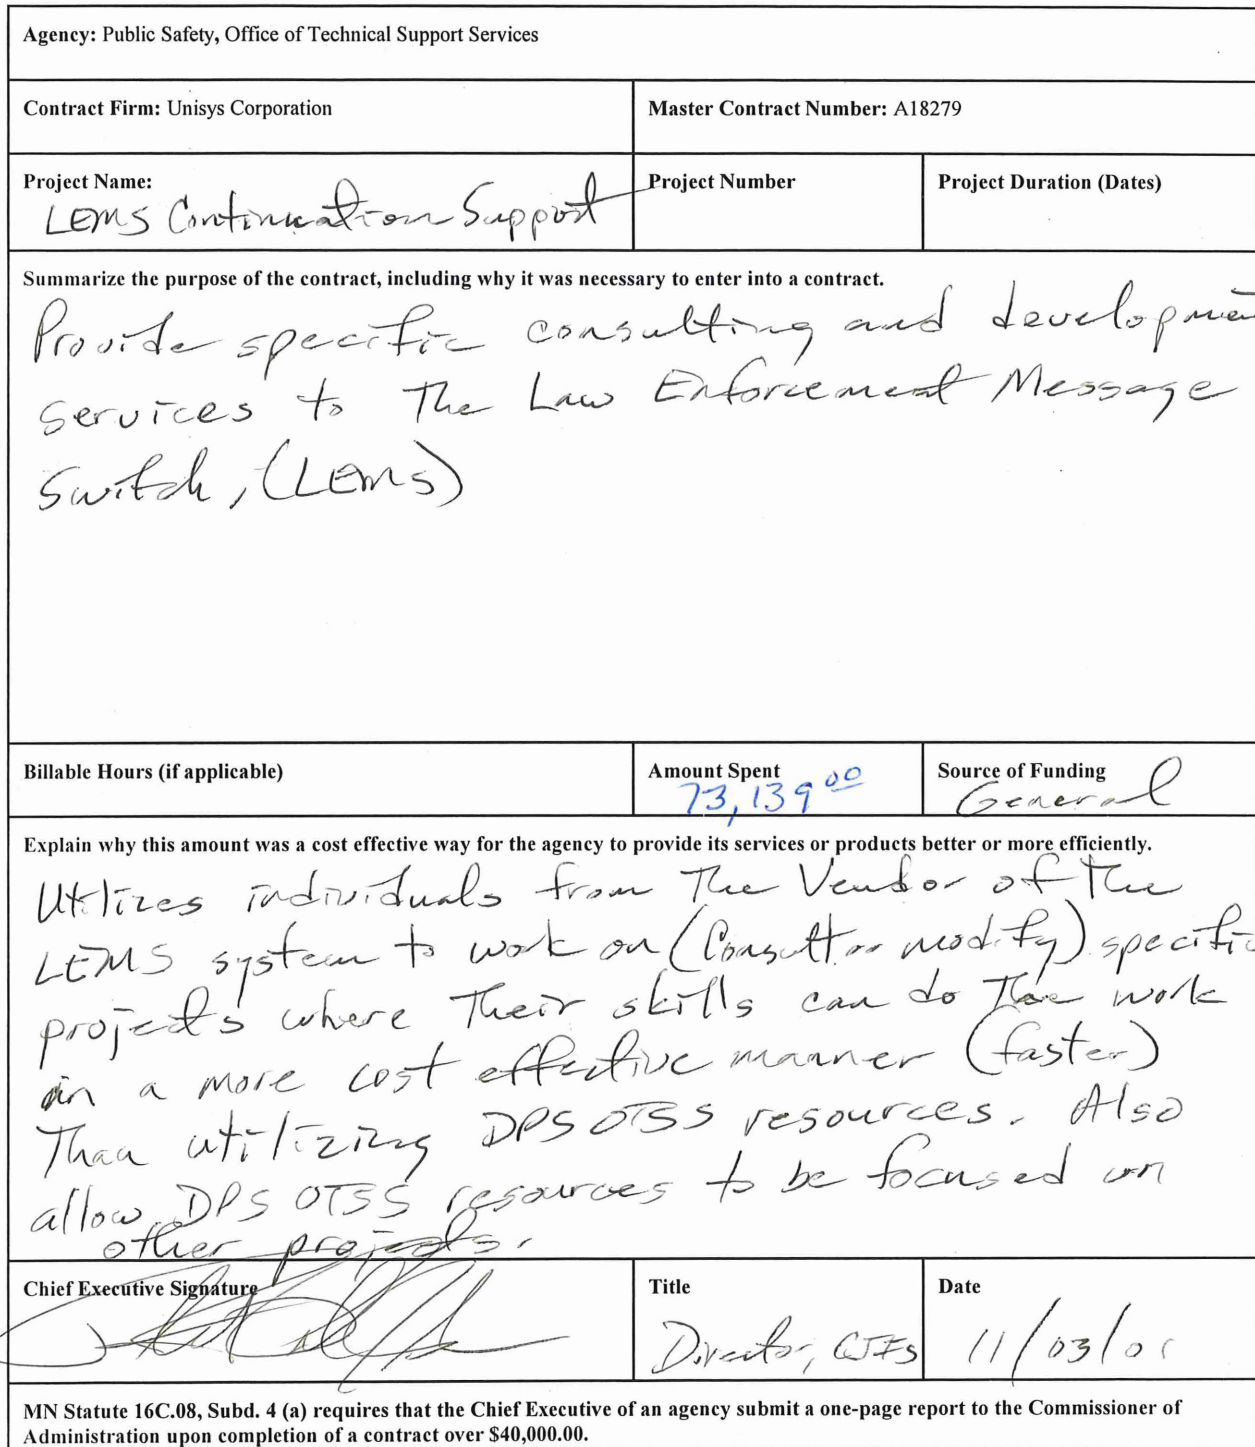 Agency: Public Safety, Office of Technical Support Services
Contract Firm: Unisys Corporation
Master Contract Number: A18279
Project Name:
LEMS Continuation Support
Project Number
Project Duration (Dates)
Summarize the purpose of the contract, including why it was necessary to enter into a contract.
Provide specific consulting and developmen
services to The Law Enforcement Message
Switch, (LEMS)
Billable Hours (if applicable)
Amount Spent
73,139 00
Source of Funding
General
Explain why this amount was a cost effective way for the agency to provide its services or products better or more efficiently.
Utilizes individuals from The Vendor of The
LEMS system to work on (Consult or modify) specific
projects where Their skills can do The work
in a more cost effective manner (faster)
Than utilizing DPS OTSS resources. Also
allow DPS OTSS resources to be focused on
other projects.
Chief Executive Signature
Title
Director, CJIS
Date
11/03/01
MN Statute 16C.08, Subd. 4 (a) requires that the Chief Executive of an agency submit a one-page report to the Commissioner of
Administration upon completion of a contract over $40,000.00.